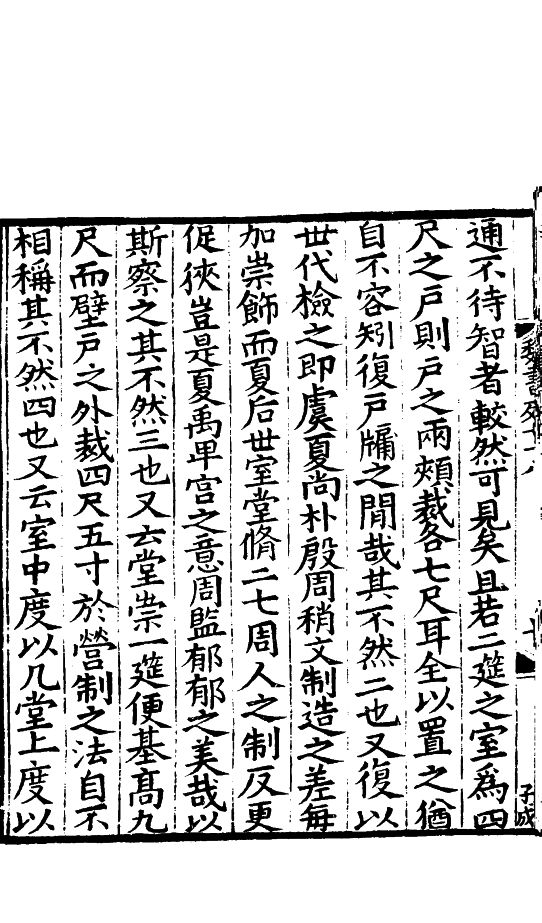 通不待智者較然可見矣且若二筵之室爲四
尺之戸則戸之兩頰裁各七尺耳全以置之猶
自不容矧復戸牖之閒哉其不然二也又復以
世代檢之即虞夏尚朴殷周稍文制造之差每
加崇飾而夏后世室堂脩二七周人之制反更
促狹豈是夏禹卑宫之意周監郁郁之美哉以
斯察之其不然三也又云堂崇一筵便基髙九
尺而壁戸之外裁四尺五寸於營制之法自不
相稱其不然四也又云室中度以几堂上度以